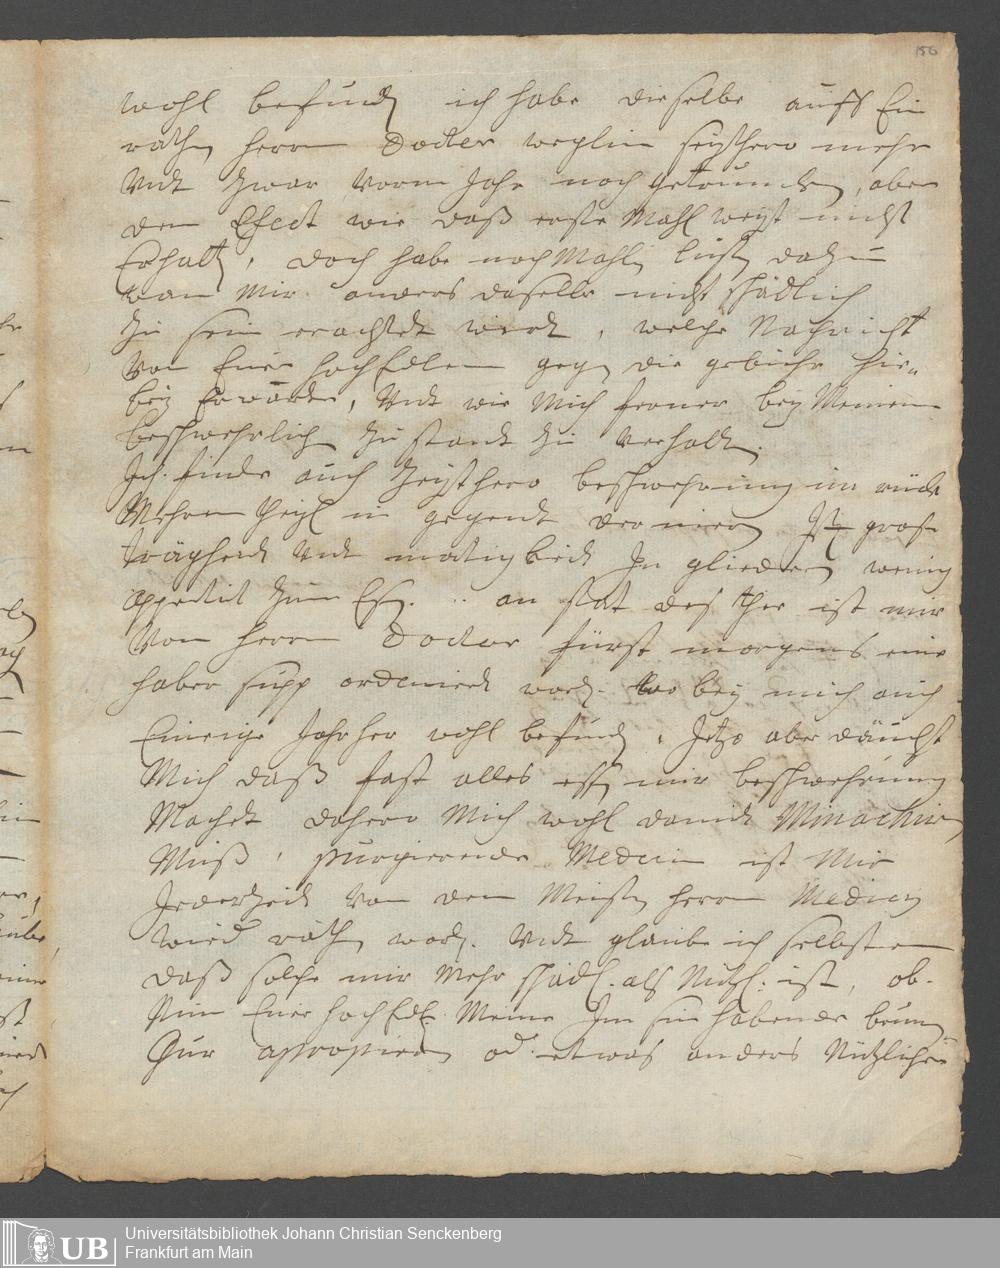 150
wohl befunden ich habe dieselbe auff Ein
rathen herrn Doctor weplin seythero mehr
Undt zwar vorm Jahr noch getruncken, aber
den Efect wie daß erste Mahl weyt nicht
Erhalten, doch habe nochMahln lusten dazu
wan Mir anders daselbe nicht schädlich
zu sein erachtet wirdt, welche Nachricht
Von Euer hochEdlen gegen die gebühr hie„
bey Erwarte, Undt wie Mich ferner bey Meinem
beschwehrlichen zustandt zu verhalten.
Ich finde auch seythero beschwehrung im
Mehren theyl in gegendt der nieren grose
trägheidt Undt matigkeit In gliedern wenig
appetit zum Esen. an stat des thee ist mir
Von herrn Doctor fürst morgens eine
haber supp ordiniert worden. wo bey mich auch
Einige Jahrher wohl befunden, Jetzo aber däucht
Mich daß fast alles essen mir beschwehrung
Machet dahero Mich wohl damit
Muß, purgierende Medecin ist Mir
Jederzeit Von den Meisten herrn Medicis
wied rathen worden. Undt glaube ich selbsten
daß solche mir Mehr schädl. als Nützl: ist, ob.
Nun Euer hochEdl. Meine Im sin habende brunen
Cur apropieren od. etwas anders Nützlicher
Universitätsbibliothek Johann Christian Senckenberg
Frankfurt am Main
UB